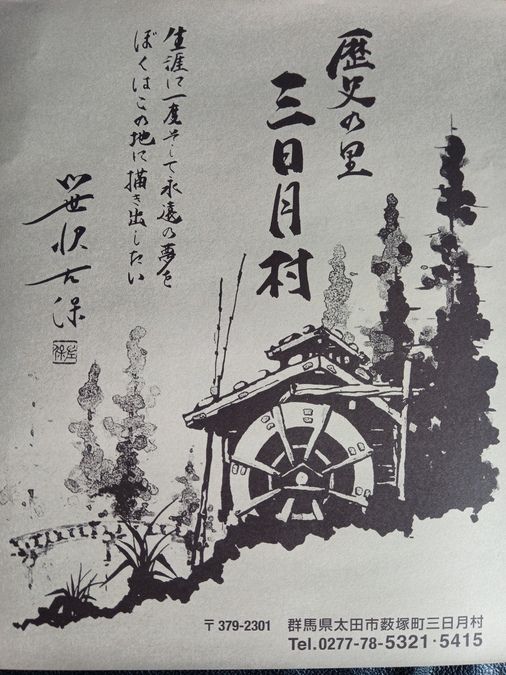 歴史の里
三日月村
生涯に一度そして永遠の夢を
ぼくはこの地に描き出したい
笹沢左保
左保
〒379-2301 群馬県太田市薮塚町三日月村
Tel.0277-78-5321・5415